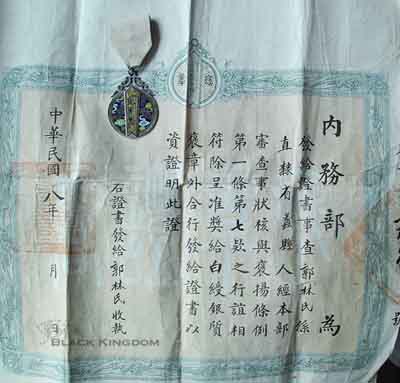 內務部 為
發給證書事查郭林民係
直隸省蠡縣人經本部
審查事狀核與褒揚條例
第一條第七款之行誼相
符除呈准獎給白綬銀質
褒章外合行發給證書以
資證明此證
右證書發給郭林民收執
中華民國八年 月 日
號
BLACK KINGDOM